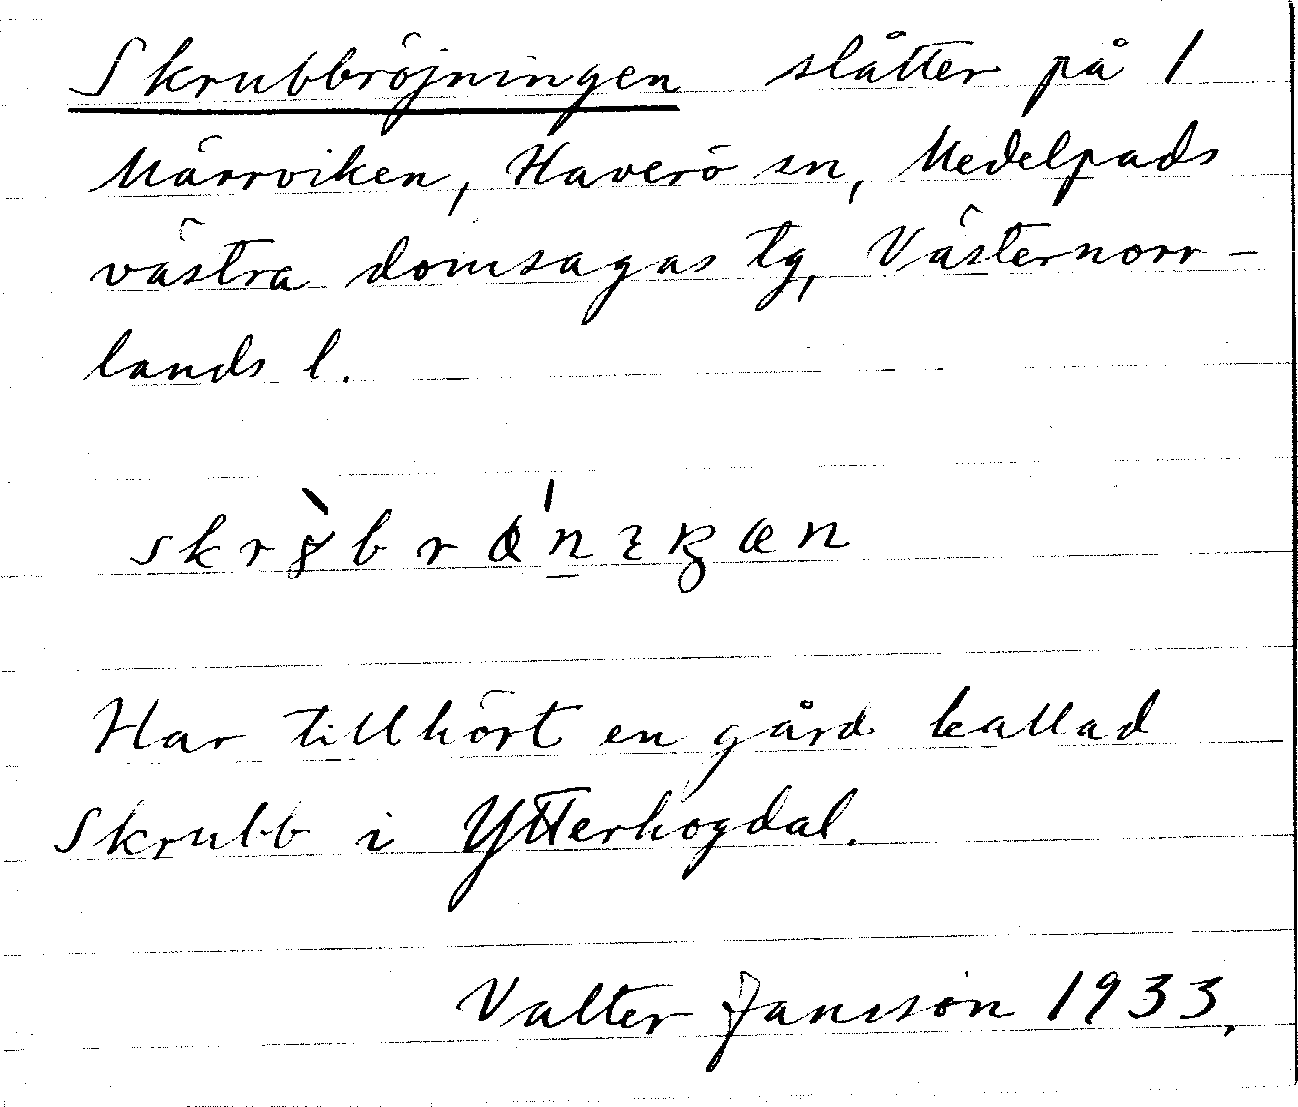 Skrubbröjningen slåtter på 1
Märrviken, Haverö sn, Medelpads
västra domsagas tg, Västernorr-
lands l.
Har tillhört en gård kallad
Skrubb i Ytterhogdal.
Valter Jansson 1933.